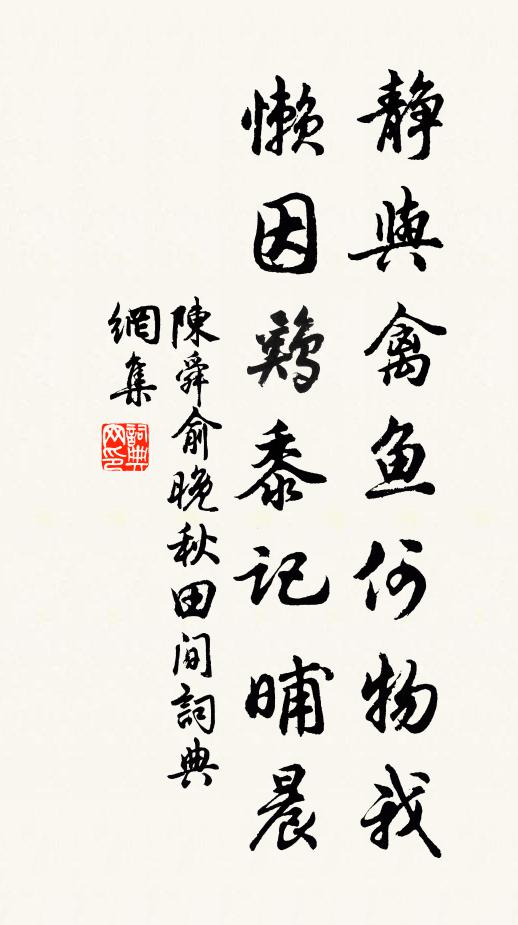 静與禽鱼何物我
懒因鷄黍記晡晨
陳舜俞晚秋田间詞典
網集
詞典网印